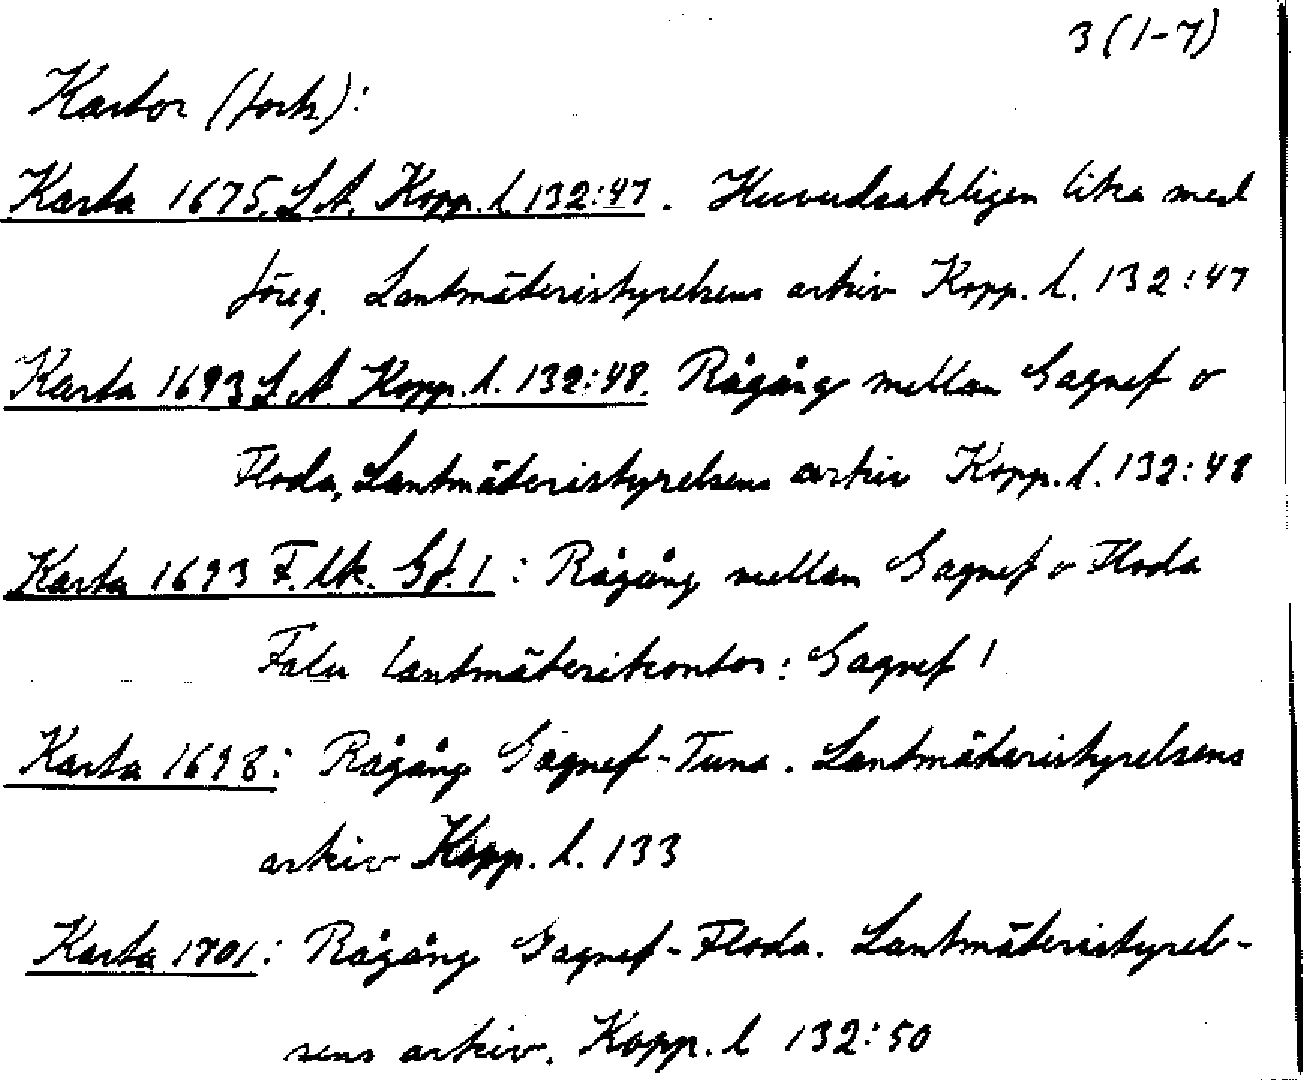 3 (1-7)
Kartor (forts):
Karta 1675. L.A. Kopp. l. 132:47. Huvudsakligen lika med
föreg. Lantmäteristyrelsens arkiv Kopp. l. 132:47
Karta 1693 L.A Kopp. l. 132:48. Rågång mellan Gagnef o
Floda, Lantmäteristyrelsens arkiv Kopp. l. 132:48
Karta 1693 F. lk. Gf. 1: Rågång mellan Gagnef o Floda
Falu lantmäterikontor: Gagnef 1
Karta 1698: Rågång Gagnef-Tuna. Lantmäteristyrelsens
arkiv Kopp. l. 133
Karta 1701: Rågång Gagnef-Floda. Lantmäteristyrel-
sens arkiv. Kopp. l 132:50